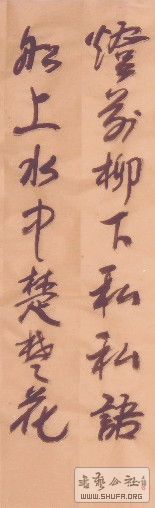 燈前柳下私私語
船上水中楚楚花
书艺公社
WWW.SHUFA.ORG